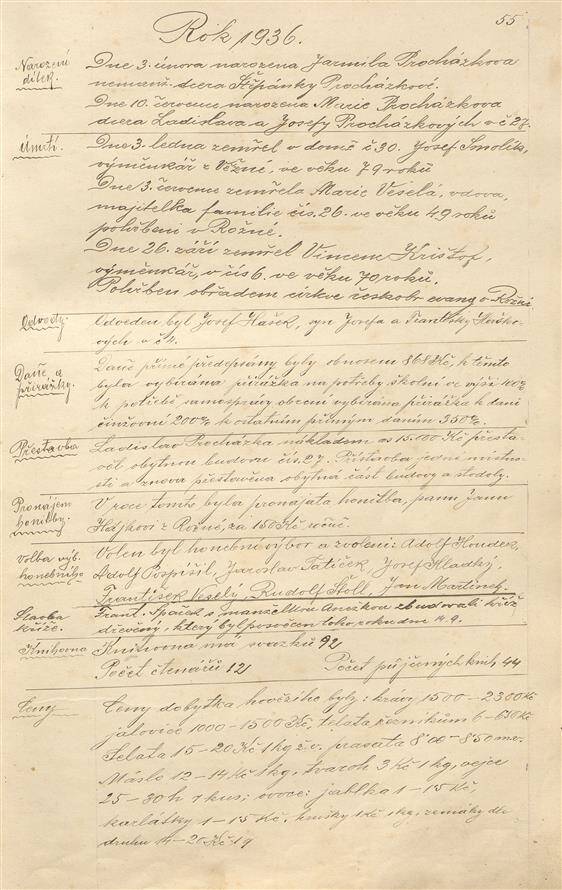 55
Rok 1936.
Narození dítek.
Dne 3. února narozena Jarmila Procházkova
nemanž. dcera Štěpánky Procházkové.
Dne 10. července narozena Marie Procházkova
dcera Ladislava a Josefy Procházkových v č 27.
Úmrtí.
Dne 3. ledna zemřel v domě č. 30. Josef Smolík,
výměnkář z Věžné, ve věku 79 roků
Dne 3. července zemřela Marie Veselá, vdova,
majitelka familie čís. 26. ve věku 49 roků
pohřbení v Rožné.
Dne 26. září zemřel Vincenc Krištof,
výměnkář, v čís 6. ve věku 70 roků.
Pohřben obřadem církve českobr evang v Rožné
Odvody.
Odveden byl Josef Hašek, syn Josefa a Františky Haško-
vých v č 4.
Daně a přirážky.
Daně přímé předepsány byly obnosem 868 Kč, k těmto
byla vybírána přirážka na potřeby školní ve výši
k potřebě samosprávy obecní vybírána přirážka k dani
činžovní 200% k ostatním přímým daním 350%.
Přestavba
Ladislav Procházka nákladem as 15.100 Kč přesta-
věl obytnou budovu čís. 27. Přístavba jedné místno-
sti a znova přestavěna obytná část budovy a stodoly.
Pronájem honitby.
V roce tomto byla pronajata honitba, panu Janu
Hájkovi z Rožné, za 150 Kč ročně.
Volba výb. honebního
Volen byl honební výbor a zvoleni: Adolf Houdek,
Adolf Pospíšil, Jaroslav Tatíček, Josef Hladký,
František Veselý, Rudolf Štoll, Jan Martinek.
Stavba kříže.
Frant. Špaček s manželkou Anežkou zbudovali kříž
dřevěný, který byl posvěcen toho roku dne
Knihovna
Knihovna má svazků 92
Počet čtenářů 12 Počet půjčených knih 44
Ceny
Ceny dobytka hovězího byly: krávy 1500 – 2300 Kč
jalovice 1000 – 1500 Kč, telata řezníkům 6 – 650 Kč
Selata 15 – 20 Kč 1 kg ž.v. prasata 8'00 – 8'50
Máslo 12 – 14 Kč 1 kg, tvaroh 3 Kč 1 kg, vejce
25 – 30 h 1 kus; ovoce: jablka 1 – 15 Kč,
karlátky 1 – 15 Kč. hrušky 1 Kč 1 kg, zemáky dle
druhu 14 – 20 Kč 1 q